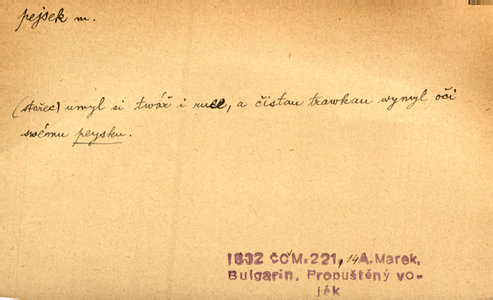 pejsek m.
(stařec) umyl si twář i ruce, a čistau trawkau wymyl oči
swému peysku.
1832 ČČM. 221, 14 A. Marek,
Bulgarin, Propuštěný vo-
ják